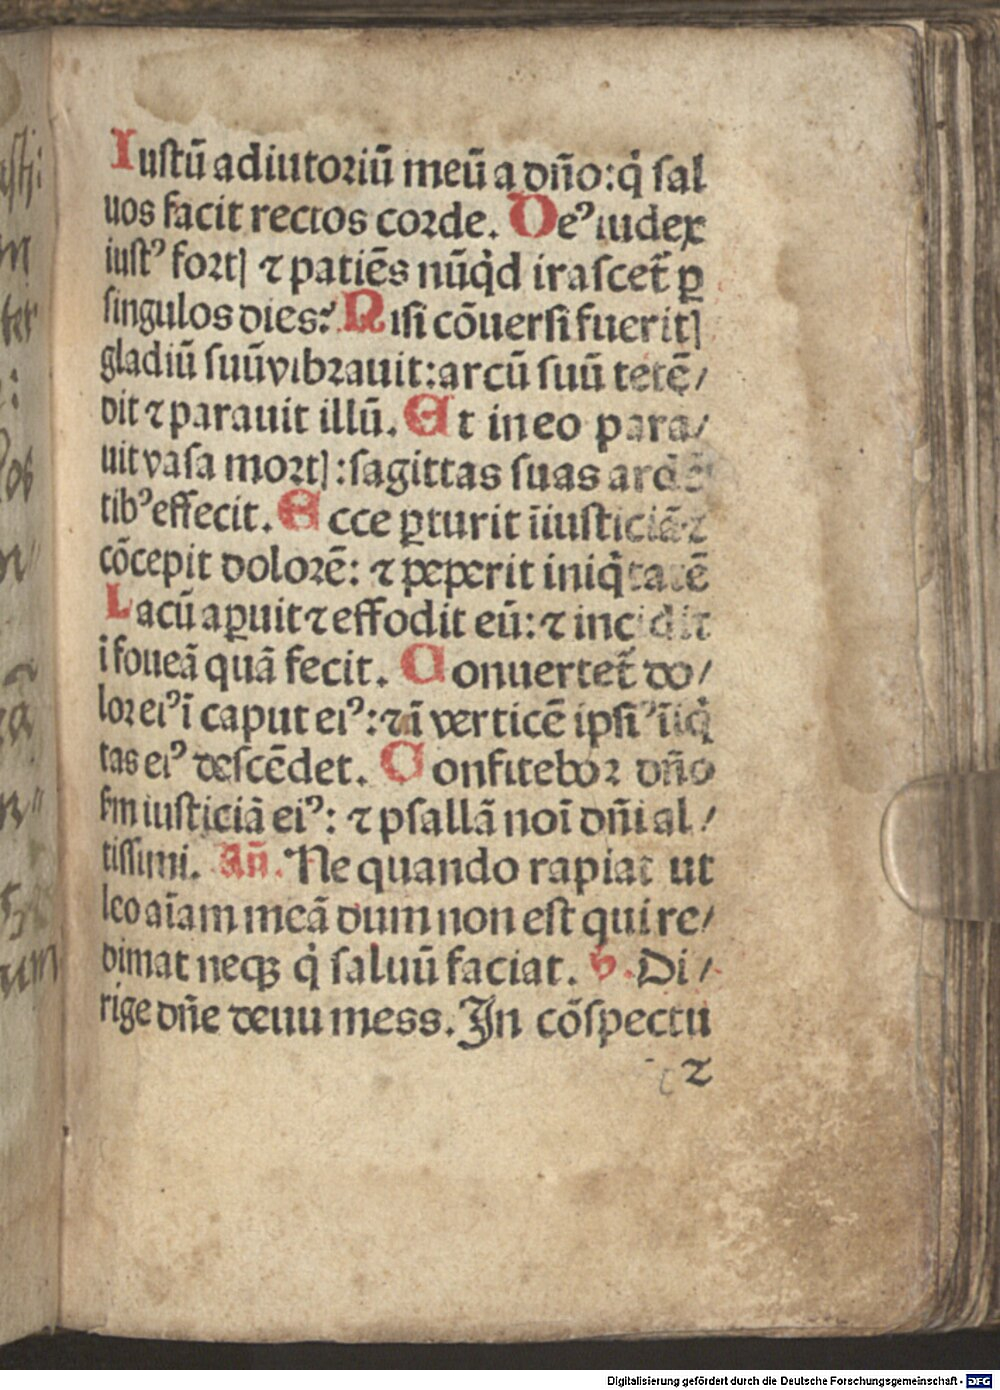 Iustū adiutoriū meū a dño:q̇ sal
uos facit rectos corde. Deꝰ iudex
iustꝰ fortꝭ ⁊ patiēs nūq̇d irascet̄ ꝑ
singulos dies: Nisi cōuersi fueritꝭ
gladiū suū vibrauit:arcū suū tetē/
dit ⁊ parauit illū. Et in eo para/
uit vasa mortꝭ:sagittas suas ardē
tibꝰ effecit. Ecce ꝑturit īiusticiā ⁊
cōcepit dolorē: ⁊ peperit iniq̇tatē
Lacū aꝑuit ⁊ effodit eū: ⁊ incidit
ī foueā quā fecit. Conuertet̄ do/
lor eiꝰ ī caput eiꝰ: ⁊ ī verticē ipsiꝰ īiq̇
tas eiꝰ descēdet. Confitebor dño
ẜm iusticiā eiꝰ: ⁊ psallā noī dñi al/
tissimi. Añ. Ne quando rapiat ut
leo aīam meā dum non est qui re/
dimat neqꝫ q̇ saluū faciat. Di/
rige dñe deuu mess. In cōspectu
2
Digitalisierung gefördert durch die Deutsche Forschungsgemeinschaft - DFG